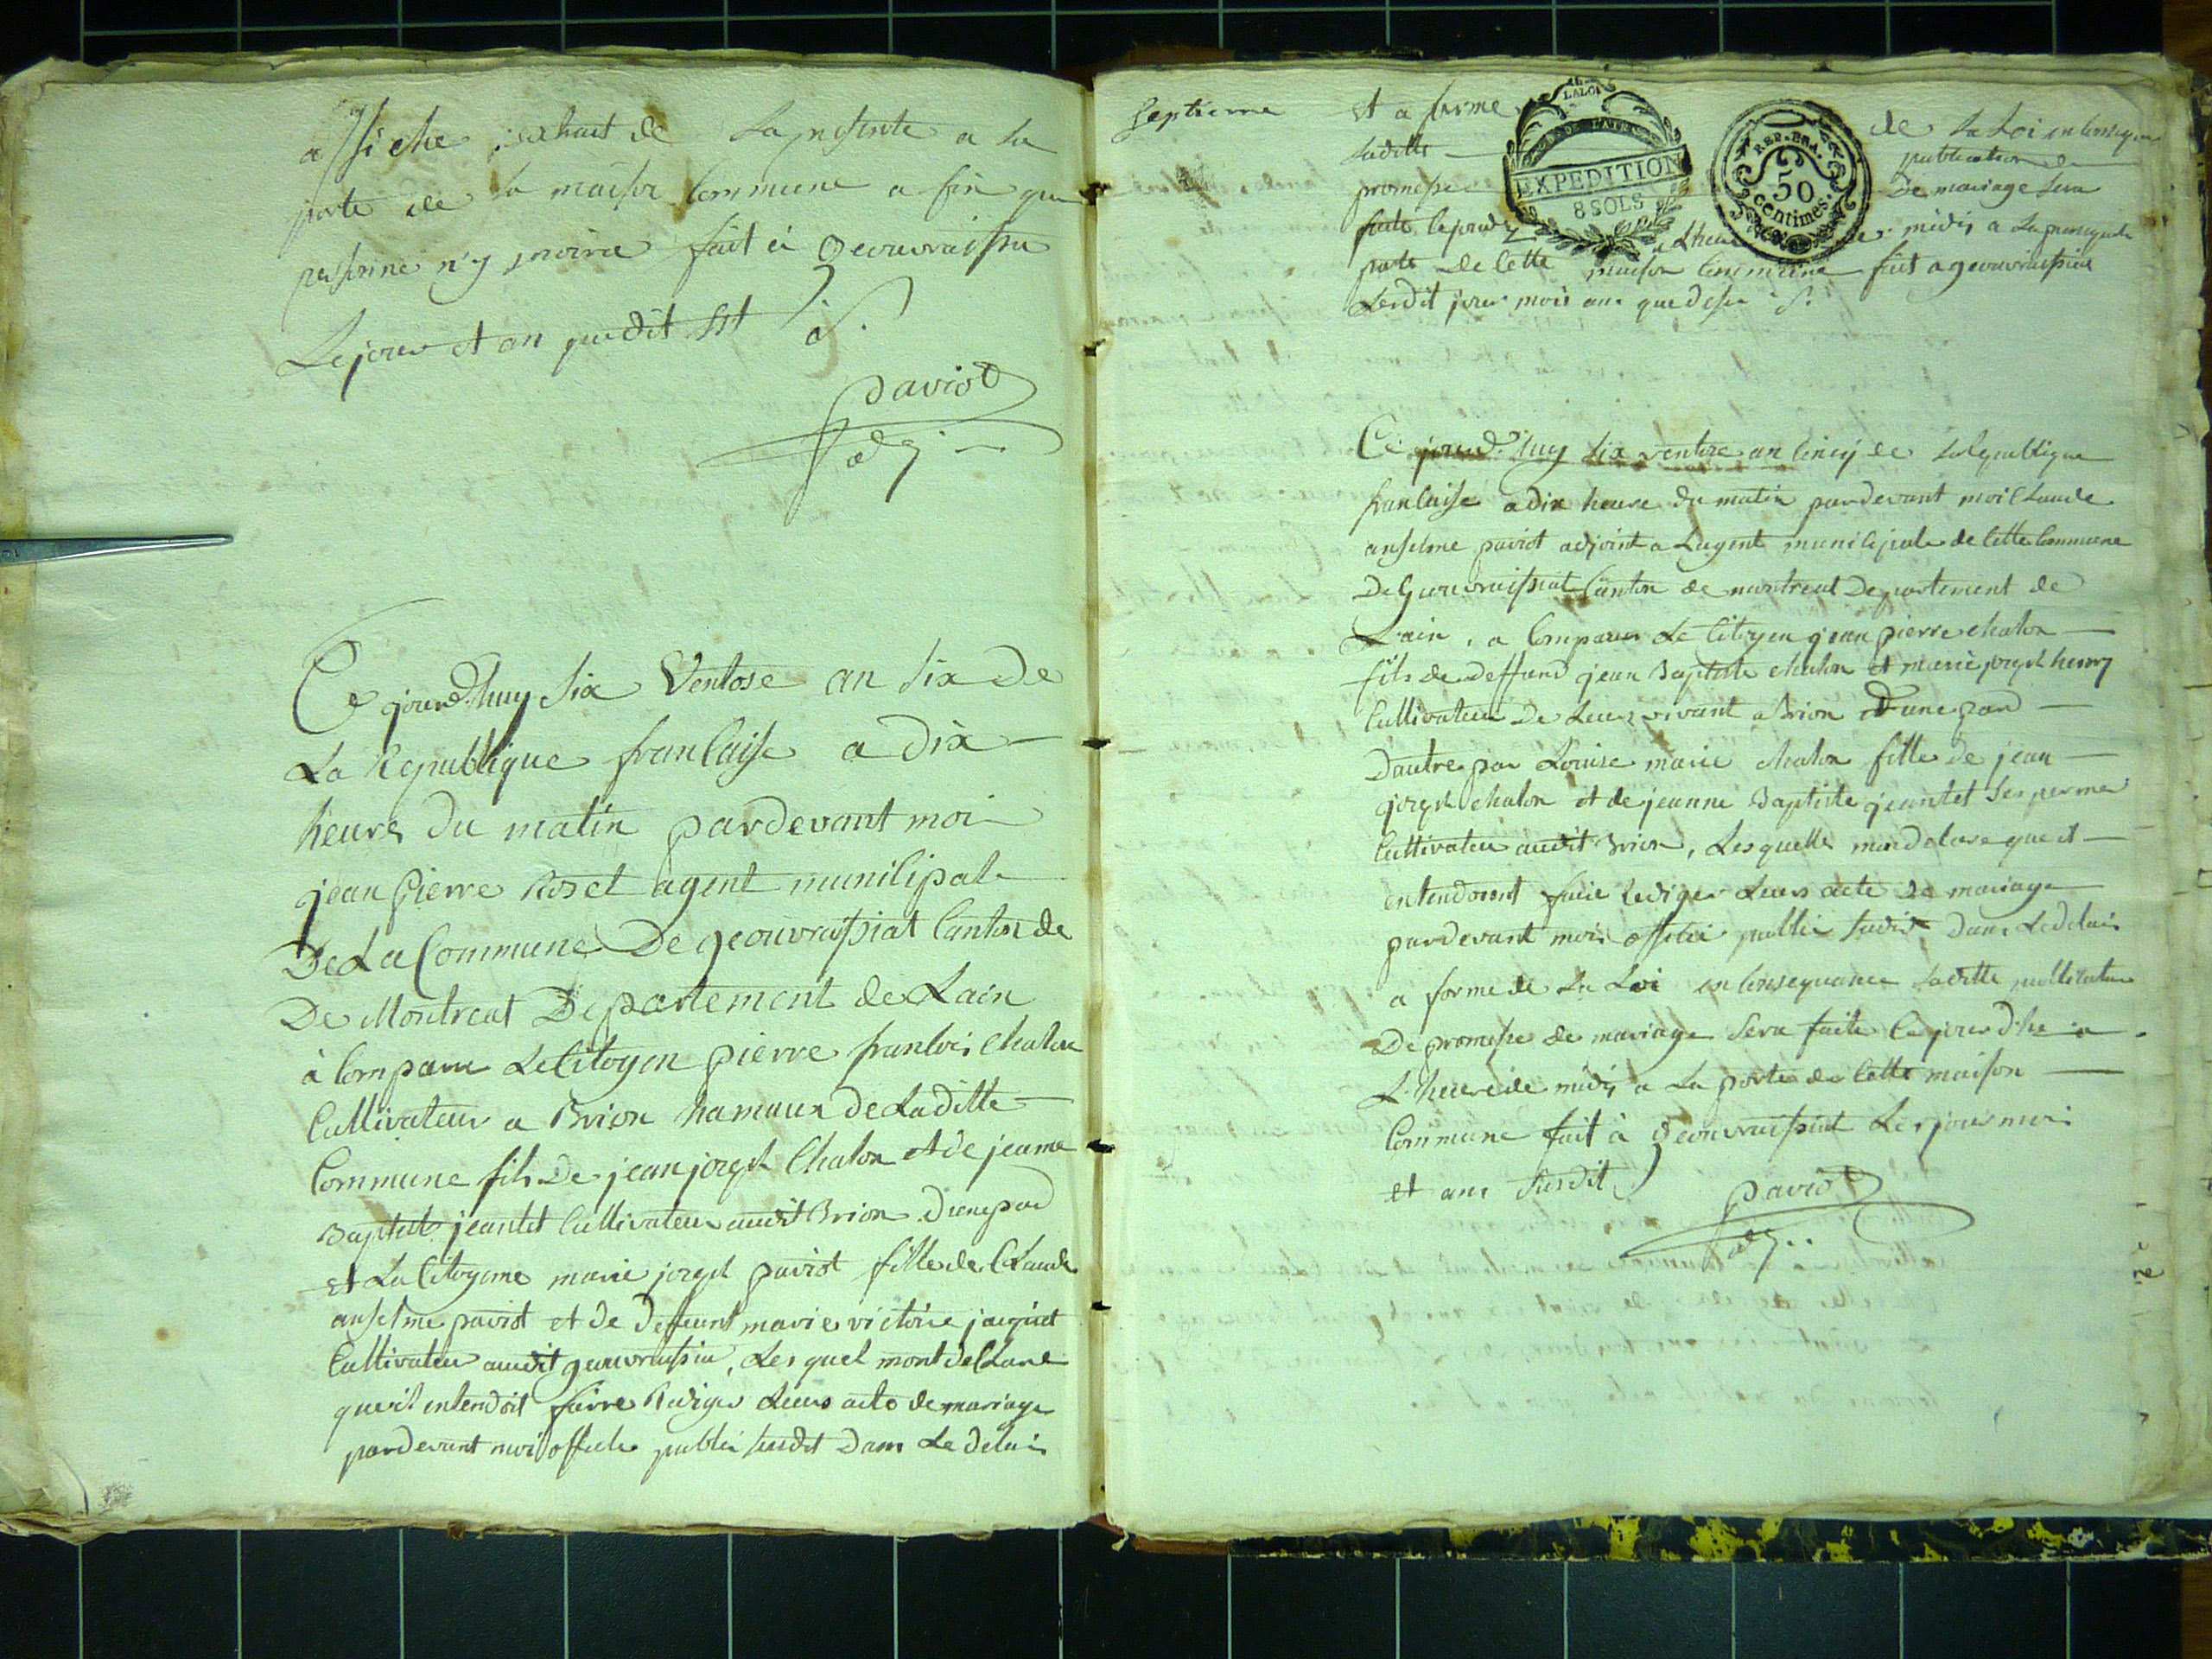 affiche extrait de la presente a la
porte de la maison Commune a fin que
personne n'y                fait à geouvraissia
Le jour et an que dit Est
paviot
adj
Ce jourd'huy six Ventose an six de
La Republique francaise a dix
heures du matin pardevant moi
jean pierre Roset agent municipale
De La Commune De geouvraissiat Canton de
De Montreal Departement de Lain
à Comparu Le Citoyen pierre francois Chalon
Cultivateur a Brion hamaux de Laditte
Commune fils De jean joseph Chalon et de jeanne
Baptiste jeantet Cultivateur audit Brion d'une par
et La Citoyenne marie joseph paviot fille de Claude
anselme paviot et de deffunt marie victoire jacquet
Cultivateur audit geouvraissia, Les quel mont declare
que il entendoit faire Rediger Leurs acte de mariage
pardevant moi officie public susdit dans Le delais
septieme
et a forme de La Loi en Consequ
Laditte publication de
promesse De mariage sera
faite Ce jourdhuy a Lheure de midy a La principale
porte de Cette maison Commune fait a geouvraissiat
Lesdit jour mois ans que dessu
LA LOI
EXPEDITION
8 SOLS
REP. FRA.
50
centimes.
Ce jourd'huy six ventose an Cinq de La Republique
francaise a dix heure du matin pardevant moi Claude
anselme paviot adjoint a Lagent municipale de Cette Commune
De Geouvraissiat Canton de montreal Departement de
L'ain, a Comparu Le Citoyen jean pierre chalon
fils de deffund jean Baptiste chalon et marie joseph henry
Cultivateur De Leur vivant a Brion D'une par
Dautre par Louise marie chalon fille de jean
joseph chalon et de jeanne Baptiste jeantet ses per mer
Cultivateur audit Brion, Lesquelle mon delare que il
entendoient faire Rediger Leurs acte de mariage
pardevant moi officie public susdit dans Le delais
a forme de La Loi en Consequance Laditte publication
De promesse de mariage sera faite Ce jour d'hui a
L'heure de midy a La porte de Cette maison
Commune fait à geouvraissiat Les jour moi
et ans susdit
paviot
adj